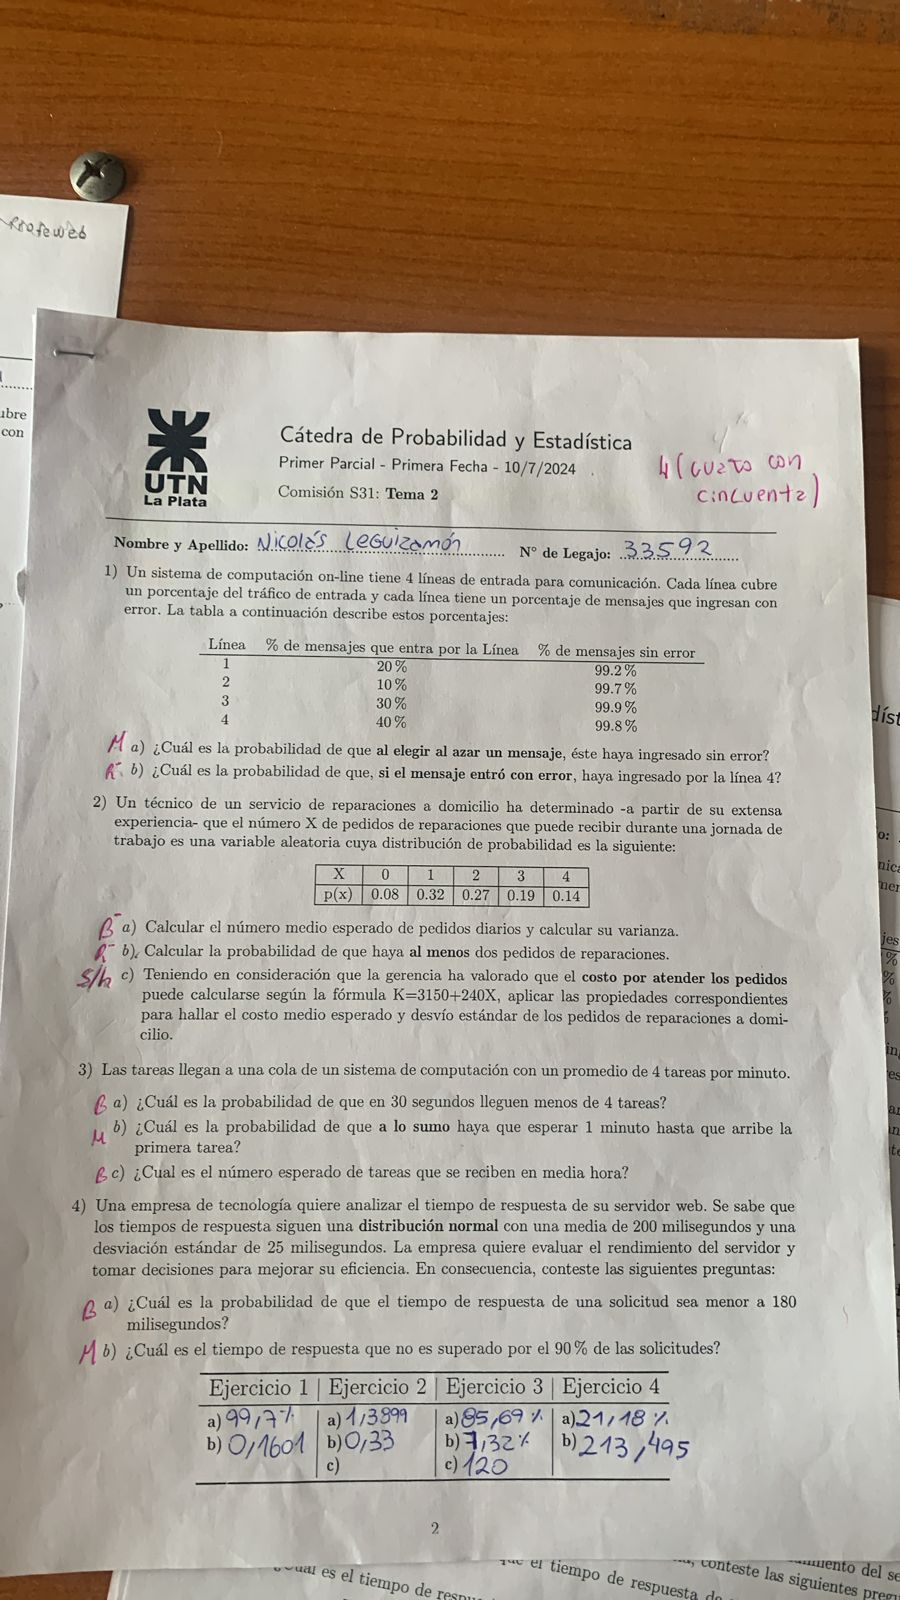 Profeweb
ubre
con
UTN
La Plata
Cátedra de Probabilidad y Estadística
Primer Parcial - Primera Fecha - 10/7/2024
Comisión S31: Tema 2
4 (cuatro con
cincuenta)
Nombre y Apellido: Nicolás Leguizamón N° de Legajo: 33592
1) Un sistema de computación on-line tiene 4 líneas de entrada para comunicación. Cada línea cubre
un porcentaje del tráfico de entrada y cada línea tiene un porcentaje de mensajes que ingresan con
error. La tabla a continuación describe estos porcentajes:
Línea % de mensajes que entra por la Línea % de mensajes sin error
1 20 % 99.2 %
2 10 % 99.7 %
3 30 % 99.9 %
4 40 % 99.8 %
M a) ¿Cuál es la probabilidad de que al elegir al azar un mensaje, éste haya ingresado sin error?
R- b) ¿Cuál es la probabilidad de que, si el mensaje entró con error, haya ingresado por la línea 4?
2) Un técnico de un servicio de reparaciones a domicilio ha determinado -a partir de su extensa
experiencia- que el número X de pedidos de reparaciones que puede recibir durante una jornada de
trabajo es una variable aleatoria cuya distribución de probabilidad es la siguiente:
X 0 1 2 3 4
p(x) 0.08 0.32 0.27 0.19 0.14
B- a) Calcular el número medio esperado de pedidos diarios y calcular su varianza.
R- b) Calcular la probabilidad de que haya al menos dos pedidos de reparaciones.
S/h c) Teniendo en consideración que la gerencia ha valorado que el costo por atender los pedidos
puede calcularse según la fórmula K=3150+240X, aplicar las propiedades correspondientes
para hallar el costo medio esperado y desvío estándar de los pedidos de reparaciones a domi-
cilio.
3) Las tareas llegan a una cola de un sistema de computación con un promedio de 4 tareas por minuto.
B a) ¿Cuál es la probabilidad de que en 30 segundos lleguen menos de 4 tareas?
M b) ¿Cuál es la probabilidad de que a lo sumo haya que esperar 1 minuto hasta que arribe la
primera tarea?
B c) ¿Cual es el número esperado de tareas que se reciben en media hora?
4) Una empresa de tecnología quiere analizar el tiempo de respuesta de su servidor web. Se sabe que
los tiempos de respuesta siguen una distribución normal con una media de 200 milisegundos y una
desviación estándar de 25 milisegundos. La empresa quiere evaluar el rendimiento del servidor y
tomar decisiones para mejorar su eficiencia. En consecuencia, conteste las siguientes preguntas:
B a) ¿Cuál es la probabilidad de que el tiempo de respuesta de una solicitud sea menor a 180
milisegundos?
M b) ¿Cuál es el tiempo de respuesta que no es superado por el 90 % de las solicitudes?
Ejercicio 1 Ejercicio 2 Ejercicio 3 Ejercicio 4
a) 99,7% a) 1,3899 a) 85,69 % a) 21,18 %
b) 0,1601 b) 0,33 b) 7,32% b) 213,495
c) c) 120
2
el tiempo de respuesta
conteste las siguientes
es el tiempo de